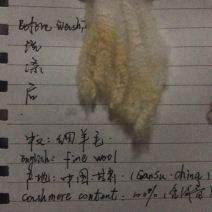 Before washi
洗
涤
后
中文: 细羊毛
English: fine wool
产地: 中国甘肃 (Gansu. China)
Cashmere content: 100%